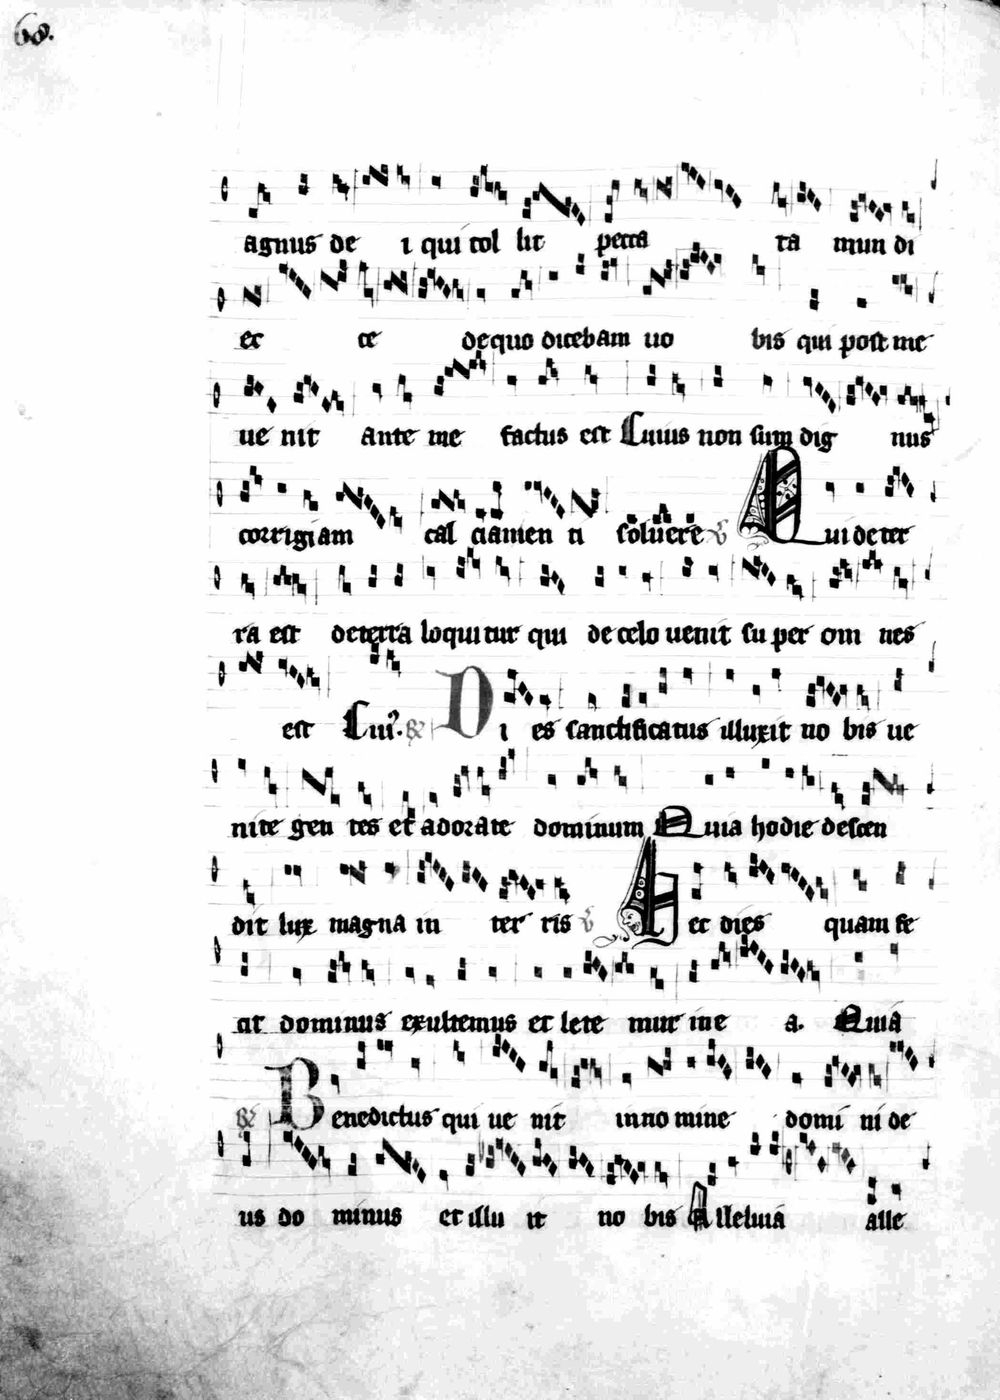 68.
agnus de i qui tol lit pecca ta mun di
ec ce de quo dicebam uo bis qui post me
ue nit ante me factus est Cuius non sum dig nus
corrigiam cal ciamen ti soluere V Qui de ter
ra est de terra loquitur qui de celo uenit su per om nes
est Cui9. R Di es sanctificatus illuxit no bis ue
nite gen tes et adorate dominum Quia hodie descen
dit lux magna in ter ris V Hec dies quam fe
cit dominus exultemus et lete mur in e a. Quia
R Benedictus qui ue nit in no mine domi ni de
us do minus et illu it no bis Alleluia alle